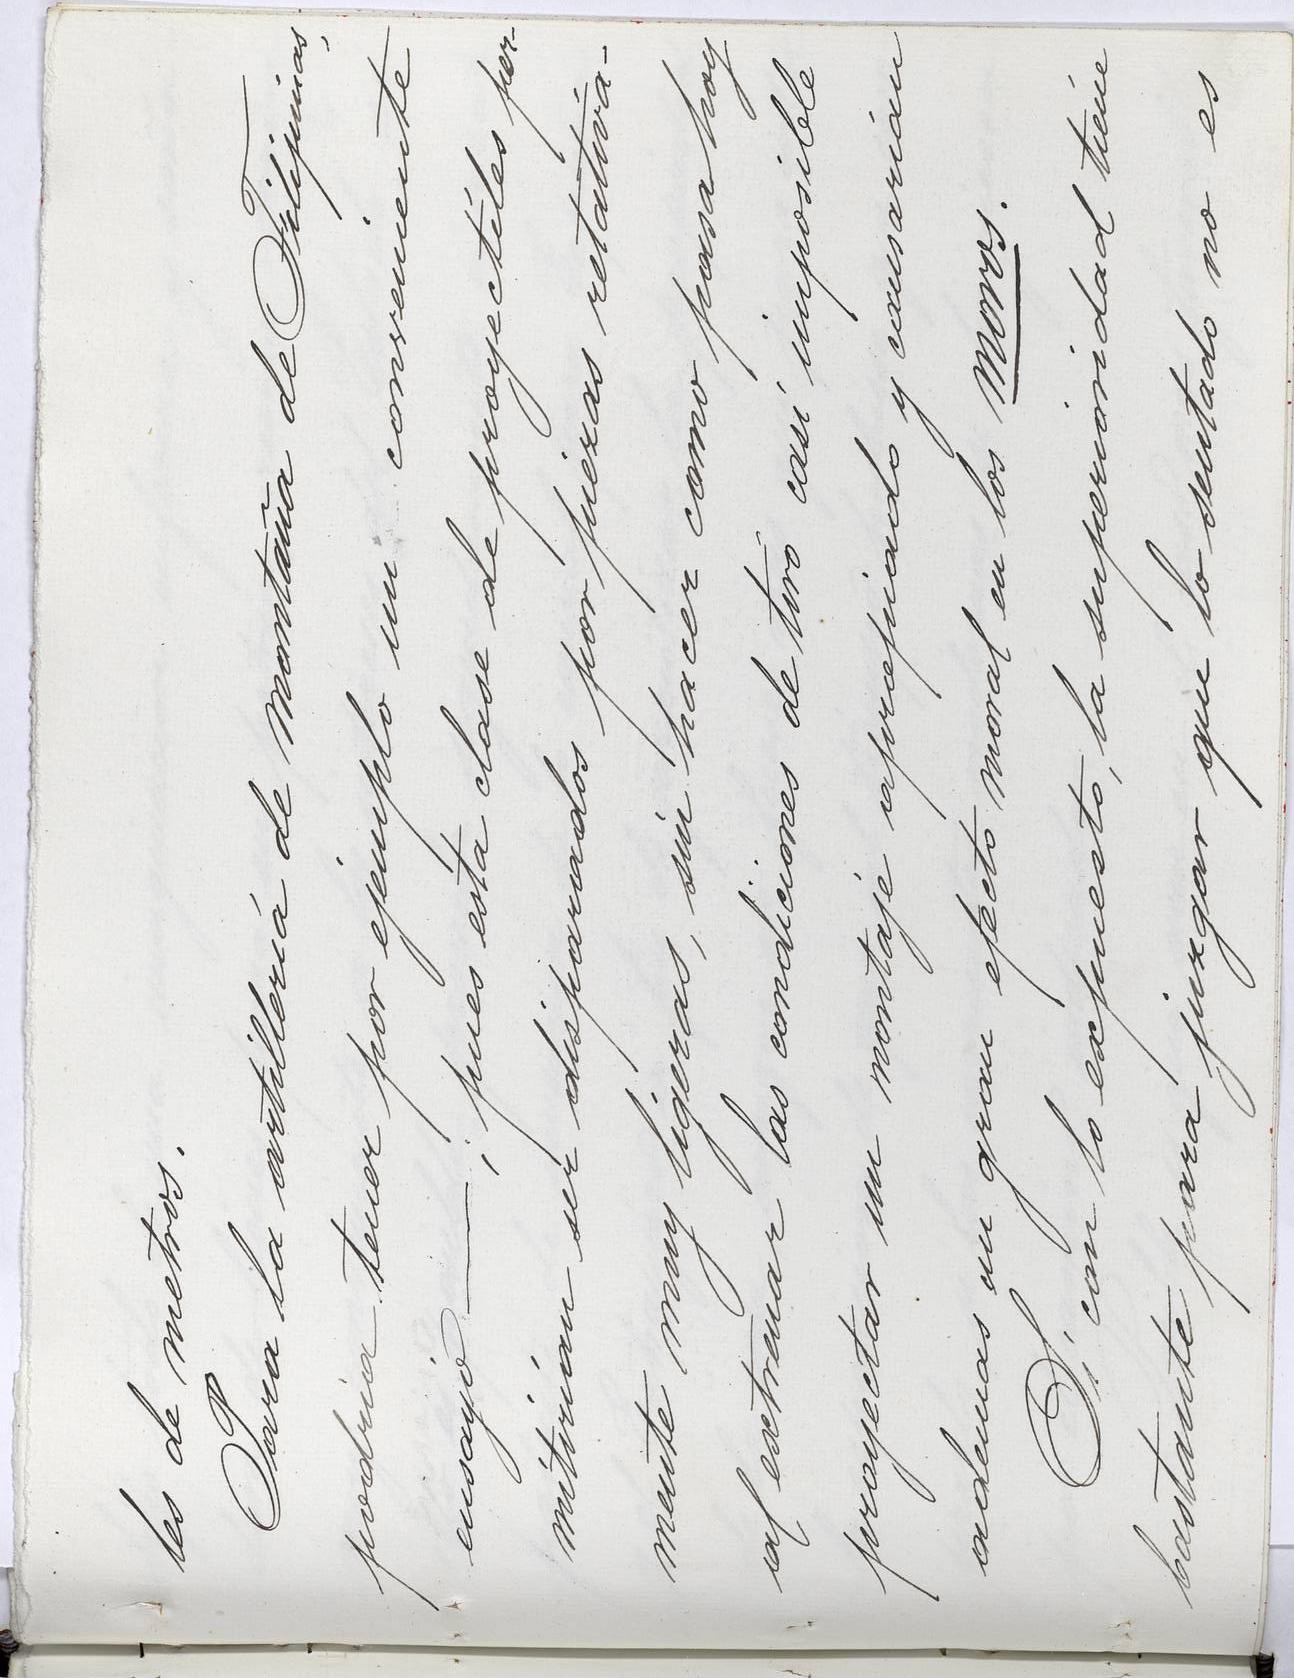 les de metros.
Para la artilleria de montaña de Filipinas,
podria tener por ejemplo un conveniente
ensayo —; pues esta clase de proyectiles per-
mitirian ser disparados por piezas relativa-
mente muy ligeras, sin hacer como pasa hoy
al extremar las condiciones de tiro casi imposible
proyectar un montaje apropiado y causarian
ademas un gran efecto moral en los moros.
Si con lo expuesto, la superioridad tiene
bastante para juzgar que lo sentado no es